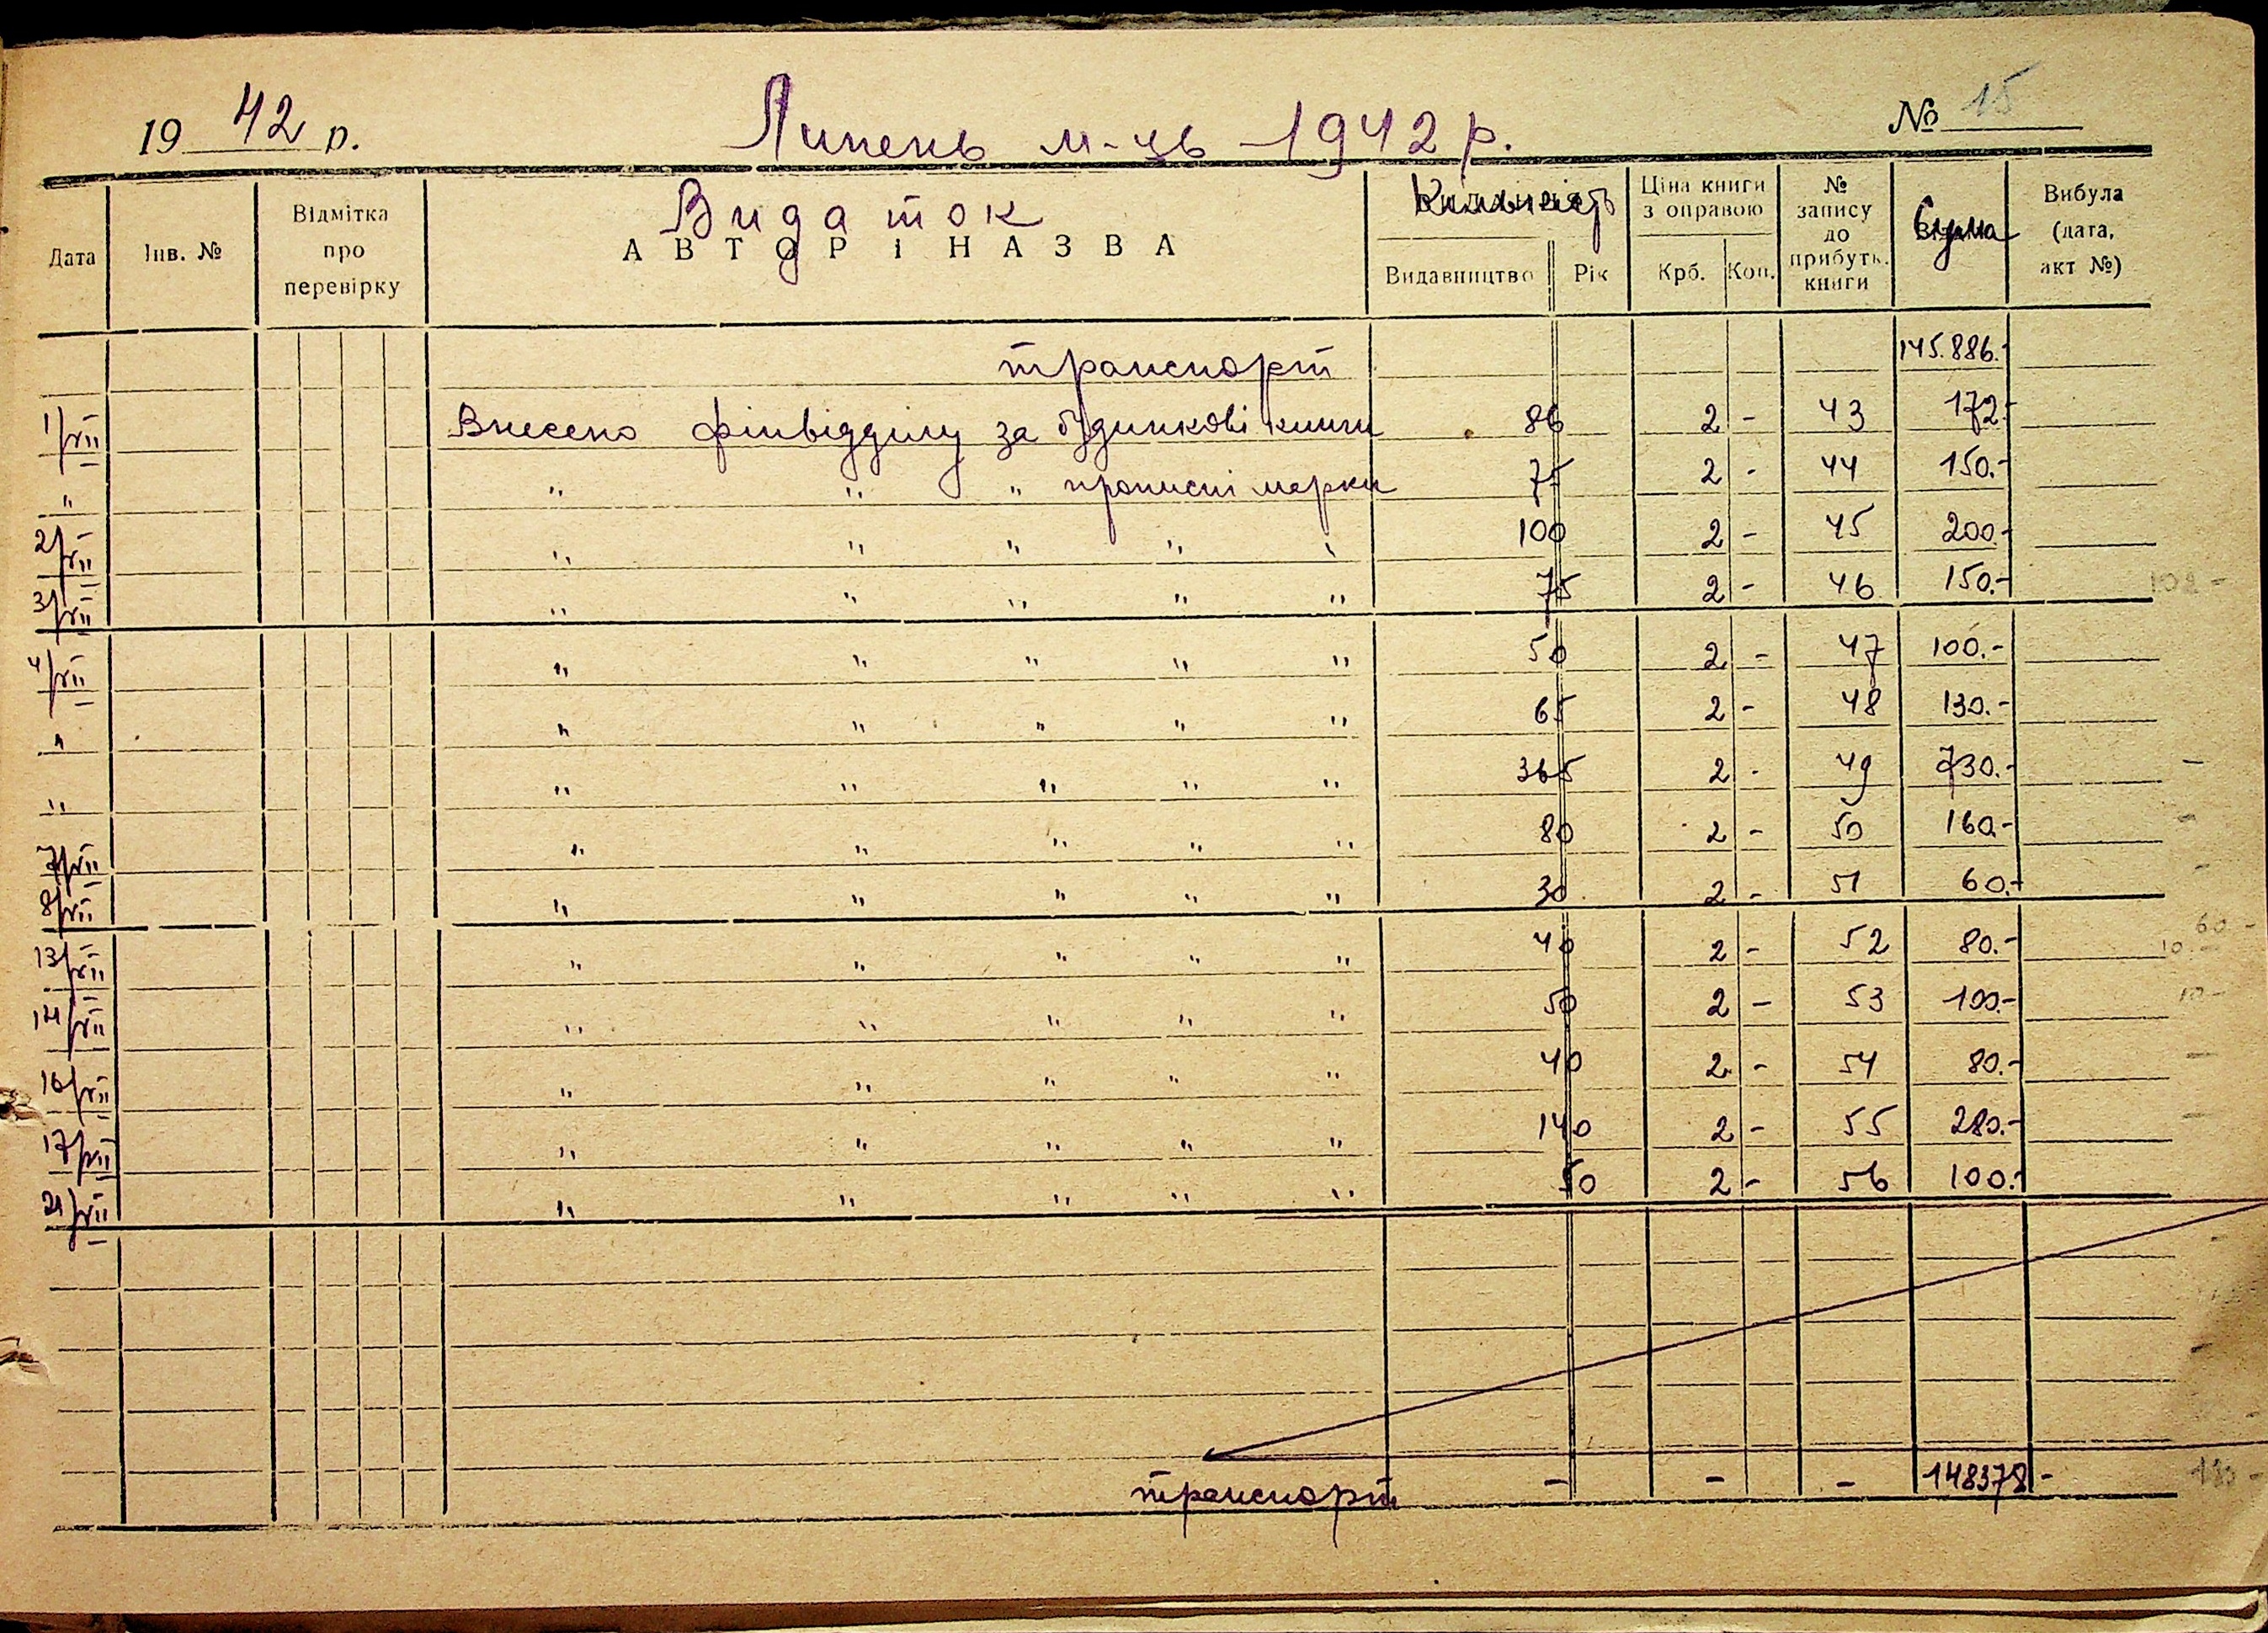 19 42 р. Липень м-ць 1942 р. № 15
Дата Інв. № Відмітка про перевірку Видаток АВТОР І НАЗВА Кількість Видавництво Рік Ціна книги з оправою Крб. Коп. № запису до прибутк. книги Сума Вибула (дата, акт №)
транспорт 145.886.-
1/VII Внесено фінвідділу за будинкові книги 86 2 - 43 172.-
" " " " прописні марки 75 2 - 44 150.-
2/VII " " " " " 100 2 - 45 200.-
3/VII " " " " " 75 2 - 46 150.-
4/VII " " " " " 50 2 - 47 100.-
" " " " " " 65 2 - 48 130.-
" " " " " " 365 2 - 49 730.-
7/VII " " " " " 80 2 - 50 160.-
8/VII " " " " " 30 2 - 51 60.-
13/VII " " " " " 40 2 - 52 80.-
14/VII " " " " " 50 2 - 53 100.-
16/VII " " " " " 40 2 - 54 80.-
17/VII " " " " " 140 2 - 55 280.-
21/VII " " " " " 50 2 - 56 100.-
транспорт - - - 148378 -